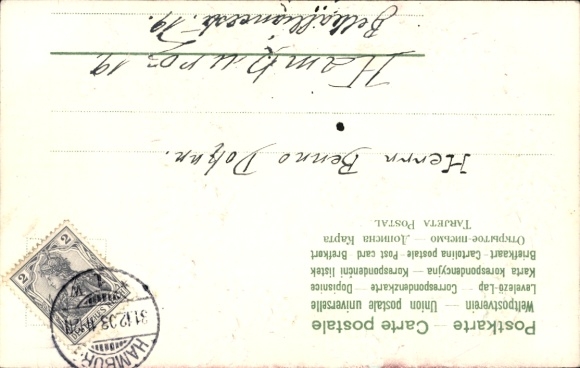 Postkarte — Carte postale
Weltpostverein — Union postale universelle
Levelező-Lap — Correspondenzkarte — Dopisnice
Karta korespondencyjna — Korespondenční lístek
Briefkaart — Cartolina postale — Post card Brefkort
Открытое письмо — Дописна Карта
TARJETA POSTAL
2
HAMBURG
31.12.03.
Herrn Benno
Hamburg 19.
Bellealliancestr. 79.